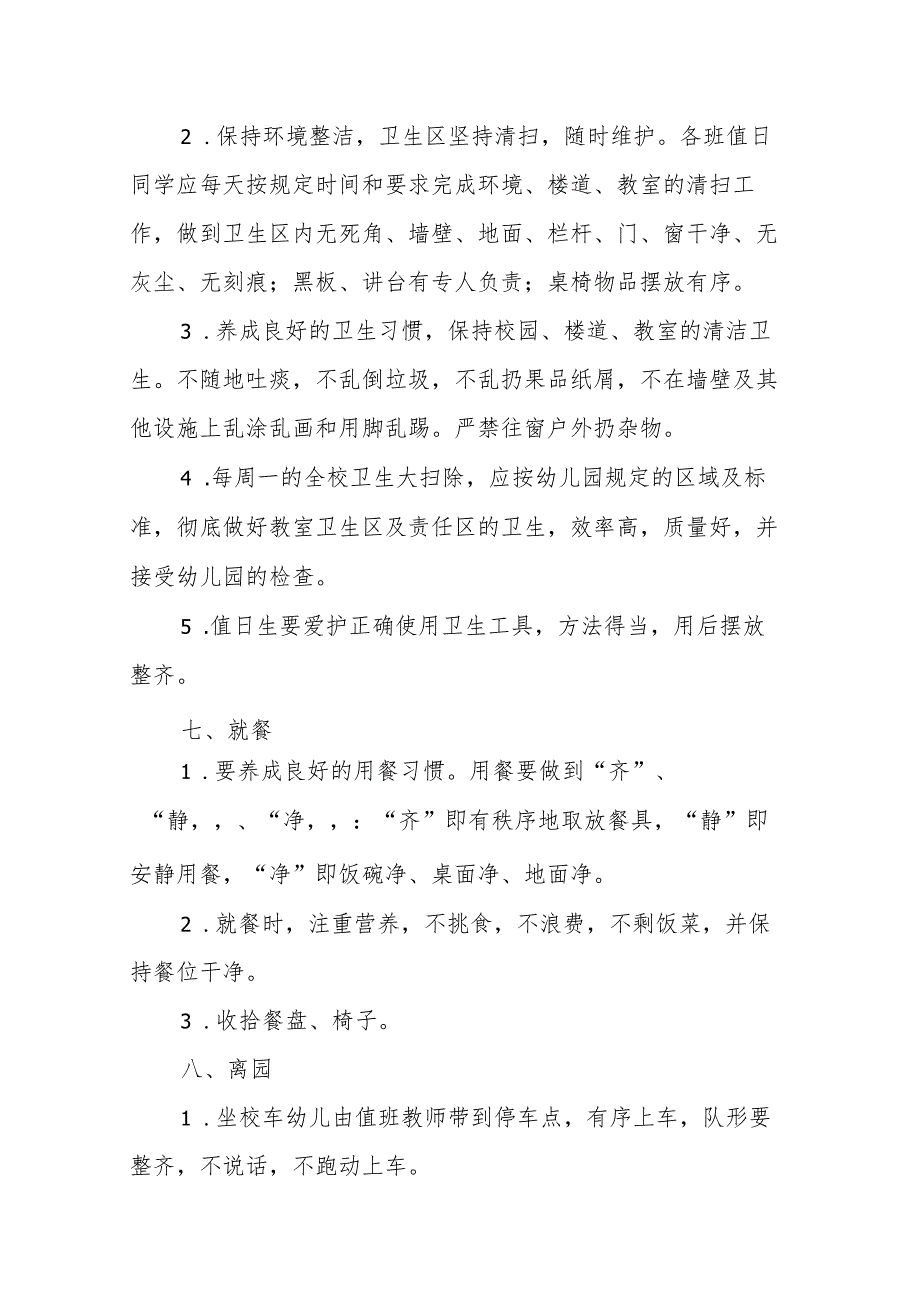 2 .保持环境整洁，卫生区坚持清扫，随时维护。各班值日
同学应每天按规定时间和要求完成环境、楼道、教室的清扫工
作，做到卫生区内无死角、墙壁、地面、栏杆、门、窗干净、无
灰尘、无刻痕；黑板、讲台有专人负责；桌椅物品摆放有序。
3 .养成良好的卫生习惯，保持校园、楼道、教室的清洁卫
生。不随地吐痰，不乱倒垃圾，不乱扔果品纸屑，不在墙壁及其
他设施上乱涂乱画和用脚乱踢。严禁往窗户外扔杂物。
4 .每周一的全校卫生大扫除，应按幼儿园规定的区域及标
准，彻底做好教室卫生区及责任区的卫生，效率高，质量好，并
接受幼儿园的检查。
5 .值日生要爱护正确使用卫生工具，方法得当，用后摆放
整齐。
七、就餐
1 .要养成良好的用餐习惯。用餐要做到“齐”、
“静，，、“净，，：“齐”即有秩序地取放餐具，“静”即
安静用餐，“净”即饭碗净、桌面净、地面净。
2 .就餐时，注重营养，不挑食，不浪费，不剩饭菜，并保
持餐位干净。
3 .收拾餐盘、椅子。
八、离园
1 .坐校车幼儿由值班教师带到停车点，有序上车，队形要
整齐，不说话，不跑动上车。